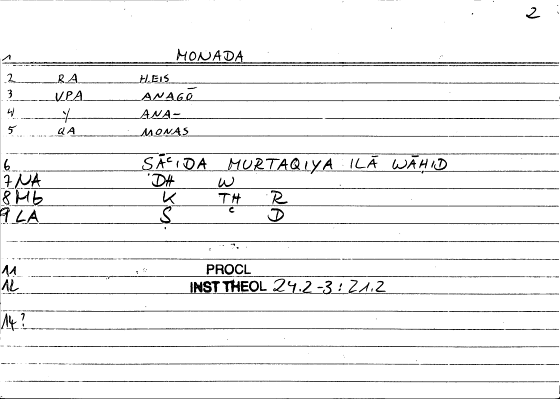 2
1 MONADA
2 RA HEIS
3 VPA ANAGŌ
4 Y ANA-
5 UA MONAS
6 SĀʿIDA MURTAQIYA ILĀ WĀḤID
7 NA DH W
8 Mb K TH R
9 LA Ṣ ʿ D
11 PROCL
12 INST THEOL 24.2-3 : 21.2
14?